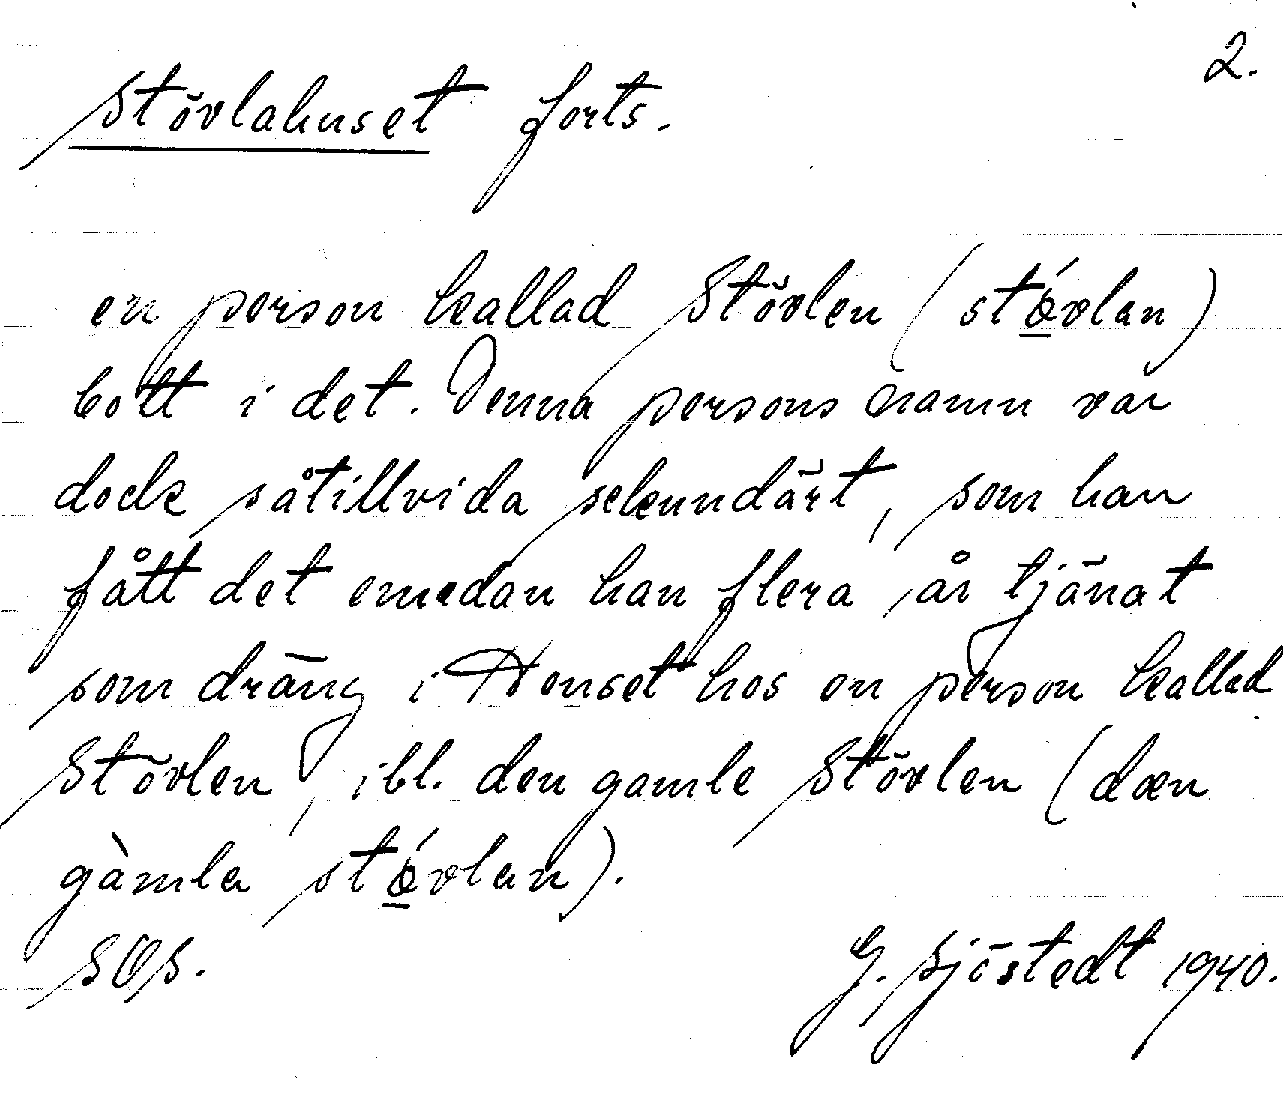 2.
Stövlahuset forts.
en person kallad Stövlen (stǿ̲vlan)
bott i det. Denna persons namn var
dock såtillvida sekundärt, som han
fått det emedan han flera år tjänat
som dräng i Honset hos en person kallad
Stövlen, ibl. den gamle Stövlen (dæn
gàmla stǿ̲vlan).
SOS.
G. Sjöstedt 1940.